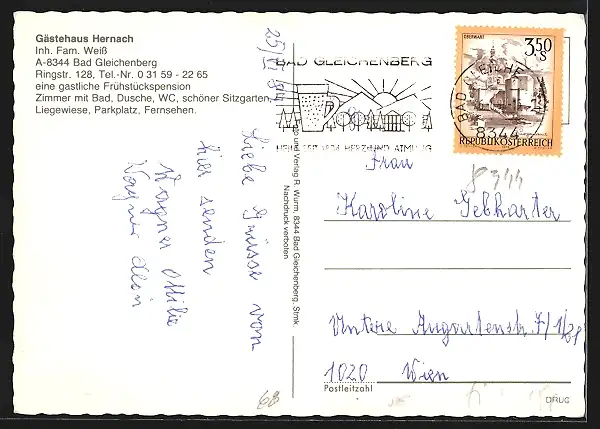 Gästehaus Hernach
Inh. Fam. Weiß
A-8344 Bad Gleichenberg
Ringstr. 128, Tel.-Nr. 0 31 59 - 22 65
eine gastliche Frühstückspension
Zimmer mit Bad, Dusche, WC, schöner Sitzgarten,
Liegewiese, Parkplatz, Fernsehen.
Liebe Grüsse von
hier senden
Wagner Ottilie
Wagner Alois
Foto und Verlag R. Wurm, 8344 Bad Gleichenberg, Stmk.
Nachdruck verboten
BAD GLEICHENBERG
HEILT SEIT 1834 HERZ UND ATMUNG
OBERWART
3,50
S
REPUBLIK ÖSTERREICH
BAD GLEICHENBERG
8344
8344
Frau
Karoline Gebharter
Untere Augartenstr. 7/1/21
1020 Wien
Postleitzahl
68
DRUC